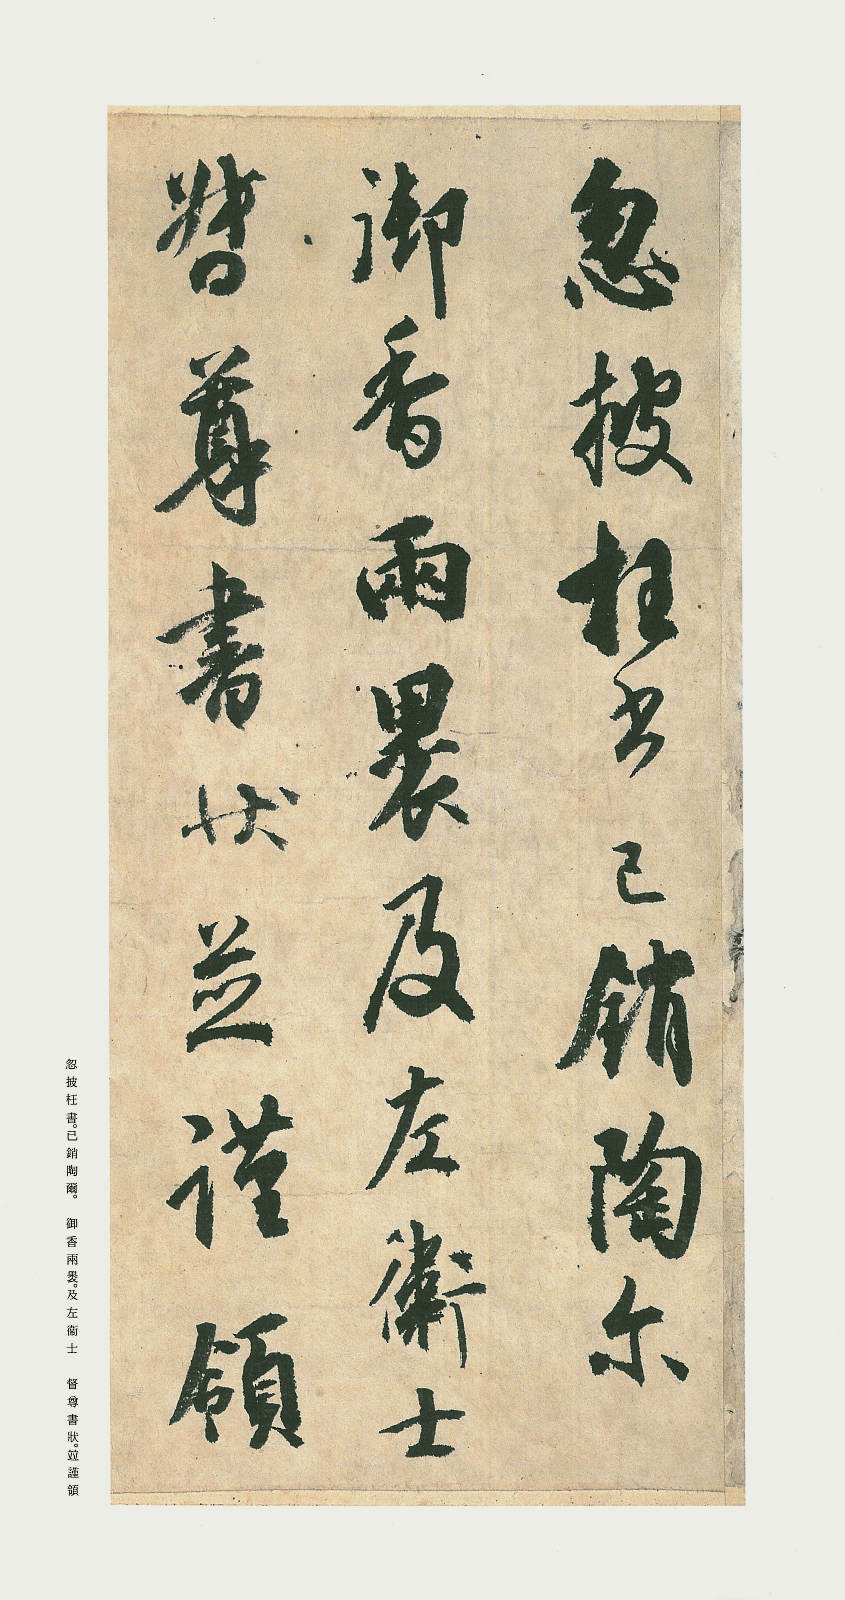 忽披枉书已銷陶尔
御香兩裹及左衛士
督尊書状並謹領
忽披枉書。已銷陶爾。　御香兩裹。及左衞士　督尊書狀。竝謹領